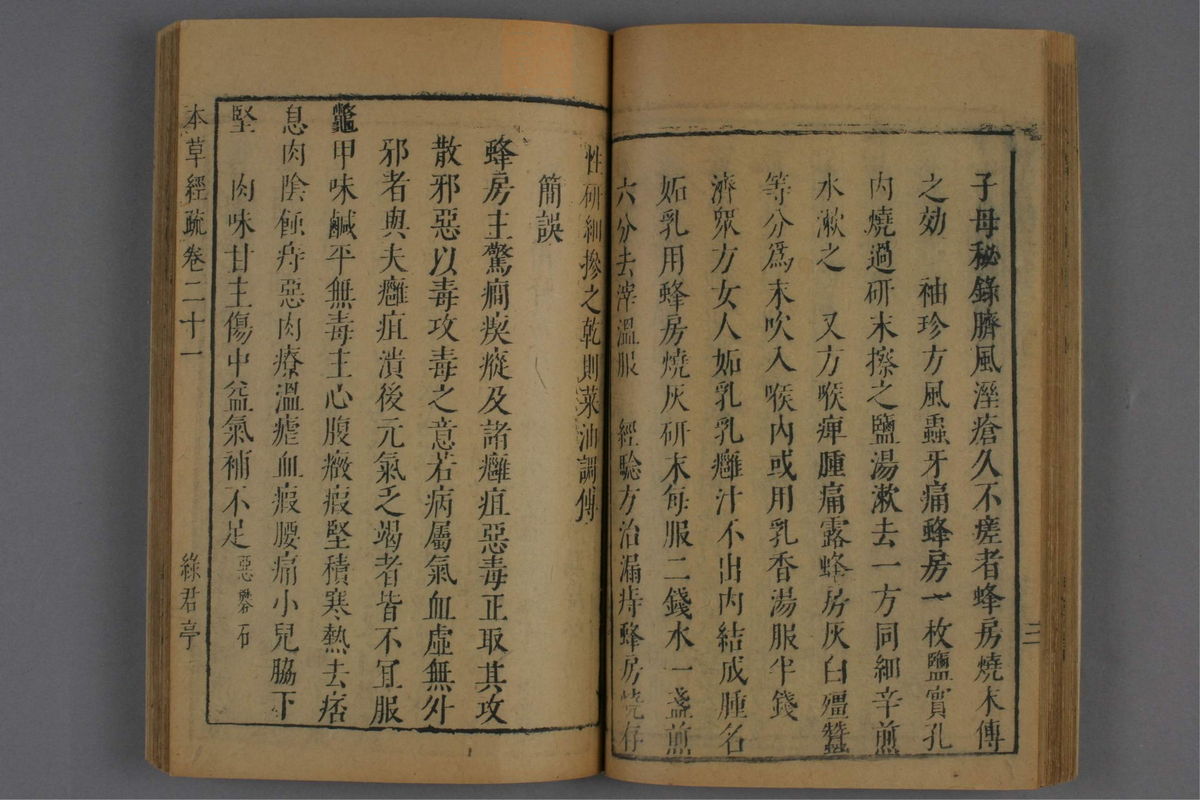 子母秘錄臍風溼瘡久不瘥者蜂房燒末傅
之効　袖珍方風蟲牙痛蜂房一枚鹽實孔
內燒過硏末擦之鹽湯漱去一方同細辛煎
水漱之　又方喉痺腫痛露蜂房灰白殭蠶
等分爲末吹入喉內或用乳香湯服半錢
濟眾方女人妬乳乳癰汁不出內結成腫名
妬乳用蜂房燒灰研末每服二錢水一盞煎
六分去滓溫服　經驗方治漏痔蜂房燒存
三
性研細摻之乾則菜油調傅
簡誤
蜂房主驚癎瘈瘲及諸癰疽惡毒正取其攻
散邪惡以毒攻毒之意若病屬氣血虛無外
邪者與夫癰疽潰後元氣乏竭者皆不宜服
鼈甲味鹹平無毒主心腹癥瘕堅積寒熱去痞
息肉陰蝕痔惡肉療溫瘧血瘕腰痛小兒脇下
堅　肉味甘主傷中益氣補不足惡礬石
本草經疏卷二十一　綠君亭